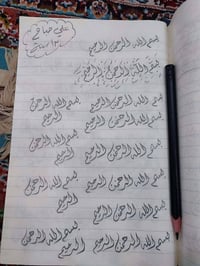 بسم الله الرحمن الرحیم
بسم الله الرحمن الرحیم
بسم الله الرحمن الرحیم بسم الله الرحمن الرحیم
بسم الله الرحمن الرحیم بسم الله الرحمن الرحیم
بسم الله الرحمن الرحیم بسم الله الرحمن الرحیم
بسم الله الرحمن الرحیم بسم الله الرحمن الرحیم
بسم الله الرحمن الرحیم بسم الله الرحمن الرحیم
بسم الله الرحمن الرحیم بسم الله الرحمن الرحیم